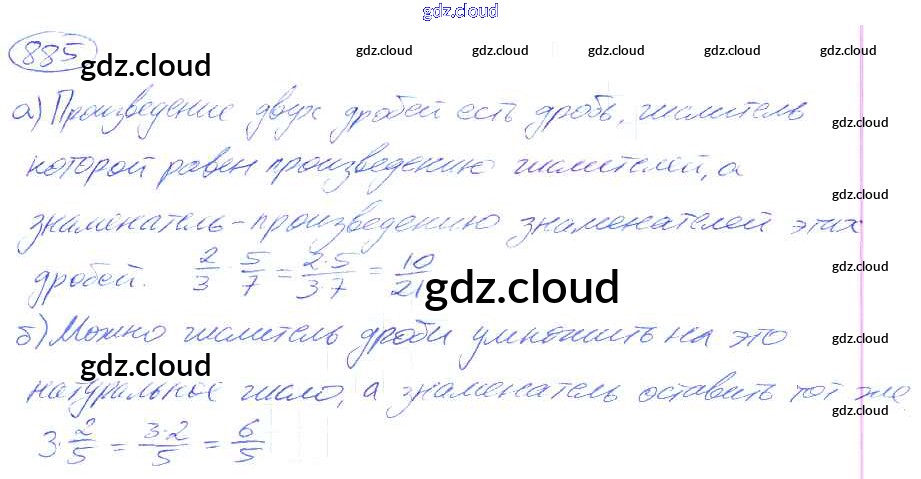 gdz.cloud
885 gdz.cloud gdz.cloud gdz.cloud gdz.cloud gdz.cloud gdz.cloud
а) Произведение двух дробей есть дробь, числитель
gdz.cloud
которой равен произведению числителей, а
gdz.cloud
знаменатель - произведению знаменателей этих
дробей. 2/3 · 5/7 = 2·5/3·7 = 10/21 gdz.cloud gdz.cloud
б) Можно числитель дроби умножить на это
gdz.cloud gdz.cloud
натуральное число, а знаменатель оставить тот же.
gdz.cloud
3·2/5 = 3·2/5 = 6/5